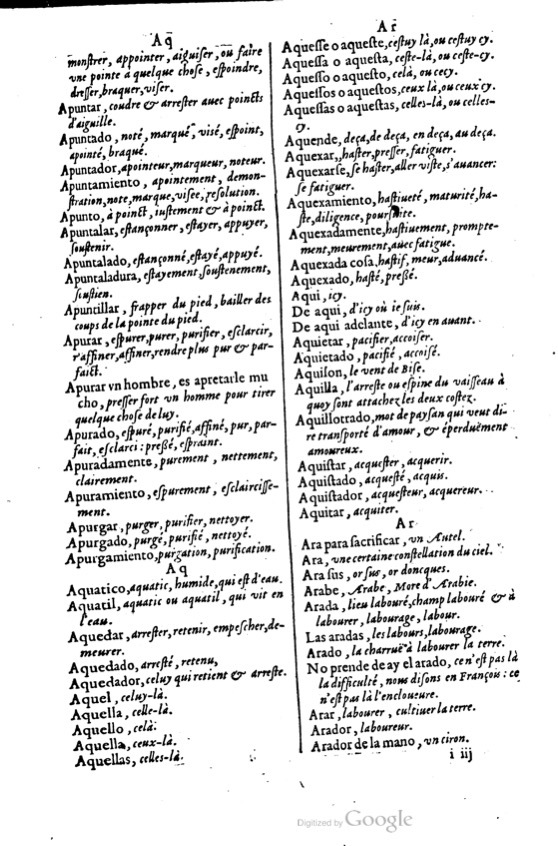 Aq
monstrer, appointer, aiguiser, ou faire
vne pointe à quelque chose, espoindre,
dresser, braquer, viser.
Apuntar, coudre & arrester auec poincts
d'aiguille.
Apuntado, noté, marqué, visé, espoint,
apointé, braqué.
Apuntador, apointeur, marqueur, noteur.
Apuntamiento, apointement, demon-
stration, note, marque, visee, resolution.
Apunto, à poinct, iustement & à poinct.
Apuntalar, estançonner, estayer, appuyer,
soustenir.
Apuntalado, estançonné, estayé, appuyé.
Apuntaladura, estayement, soustenement,
soustien.
Apuntillar, frapper du pied, bailler des
coups de la pointe du pied.
Apurar, espurer, purer, purifier, esclarcir,
r'affiner, affiner, rendre plus pur & par-
faict.
Apurar vn hombre, es apretarle mu
cho, presser fort vn homme pour tirer
quelque chose de luy.
Apurado, espuré, purifié, affiné, pur, par-
fait, esclarci: preßé, espraint.
Apuradamente, purement, nettement,
clairement.
Apuramiento, espurement, esclaircisse-
ment.
Apurgar, purger, purifier, nettoyer.
Apurgado, purgé, purifié, nettoyé.
Apurgamiento, purgation, purification.
Aq
Aquatico, aquatic, humide, qui est d'eau.
Aquatil, aquatic ou aquatil, qui vit en
l'eau.
Aquedar, arrester, retenir, empescher, de-
meurer.
Aquedado, arresté, retenu,
Aquedador, celuy qui retient & arreste.
Aquel, celuy-là.
Aquella, celle-là.
Aquello, celà.
Aquella, ceux-là.
Aquellas, celles-là.
Ar
Aquesse o aqueste, cestuy là, ou cestuy cy.
Aquessa o aquesta, ceste-là, ou ceste-cy.
Aquesso o aquesto, celà, ou cecy.
Aquessos o aquestos, ceux là, ou ceux cy.
Aquessas o aquestas, celles-là, ou celles-
cy.
Aquende, deça, de deça, en deça, au deça.
Aquexar, haster, presser, fatiguer.
Aquexarse, se haster, aller viste, s'auancer:
se fatiguer.
Aquexamiento, hastiueté, maturité, ha-
ste, diligence, poursuite.
Aquexadamente, hastiuement, prompte-
ment, meurement, auec fatigue.
Aquexada cosa, hastif, meur, aduancé.
Aquexado, hasté, preßé.
Aqui, icy.
De aqui, d'icy où ie suis.
De aqui adelante, d'icy en auant.
Aquietar, pacifier, accoiser.
Aquietado, pacifié, accoisé.
Aquilon, le vent de Bise.
Aquilla, l'arreste ou espine du vaisseau à
quoy sont attachez les deux costez.
Aquillotrado, mot de paysan qui veut di-
re transporté d'amour, & éperduëment
amoureux.
Aquistar, acquester, acquerir.
Aquistado, acquesté, acquis.
Aquistador, acquesteur, acquereur.
Aquitar, acquiter.
Ar
Ara para sacrificar, vn Autel.
Ara, vne certaine constellation du ciel.
Ara sus, or sus, or doncques.
Arabe, Arabe, More d'Arabie.
Arada, lieu labouré, champ labouré & à
labourer, labourage, labour.
Las aradas, les labours, labourage.
Arado, la charruë à labourer la terre.
No prende de ay el arado, ce n'est pas là
la difficulté, nous disons en François: ce
n'est pas là l'encloueure.
Arar, labourer, cultiuer la terre.
Arador, laboureur.
Arador de la mano, vn ciron.
i iij
Digitized by Google